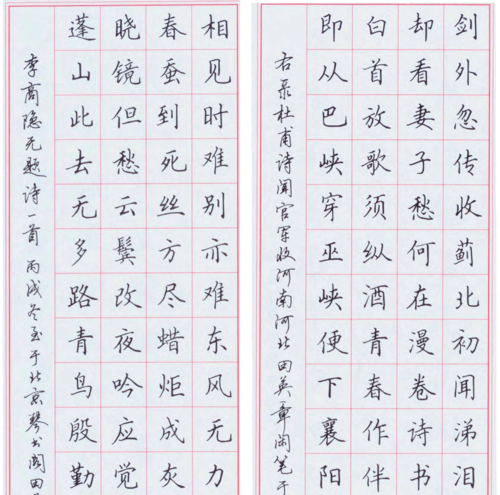 相见时难别亦难东风无力
春蚕到死丝方尽蜡炬成灰
晓镜但愁云鬓改夜吟应觉
蓬山此去无多路青鸟殷勤
李商隐无题诗一首 丙戌冬至于北京琴书阁田
剑外忽传收蓟北初闻涕泪
却看妻子愁何在漫卷诗书
白首放歌须纵酒青春作伴
即从巴峡穿巫峡便下襄阳
右录杜甫诗闻官军收河南河北 田英章闲笔于